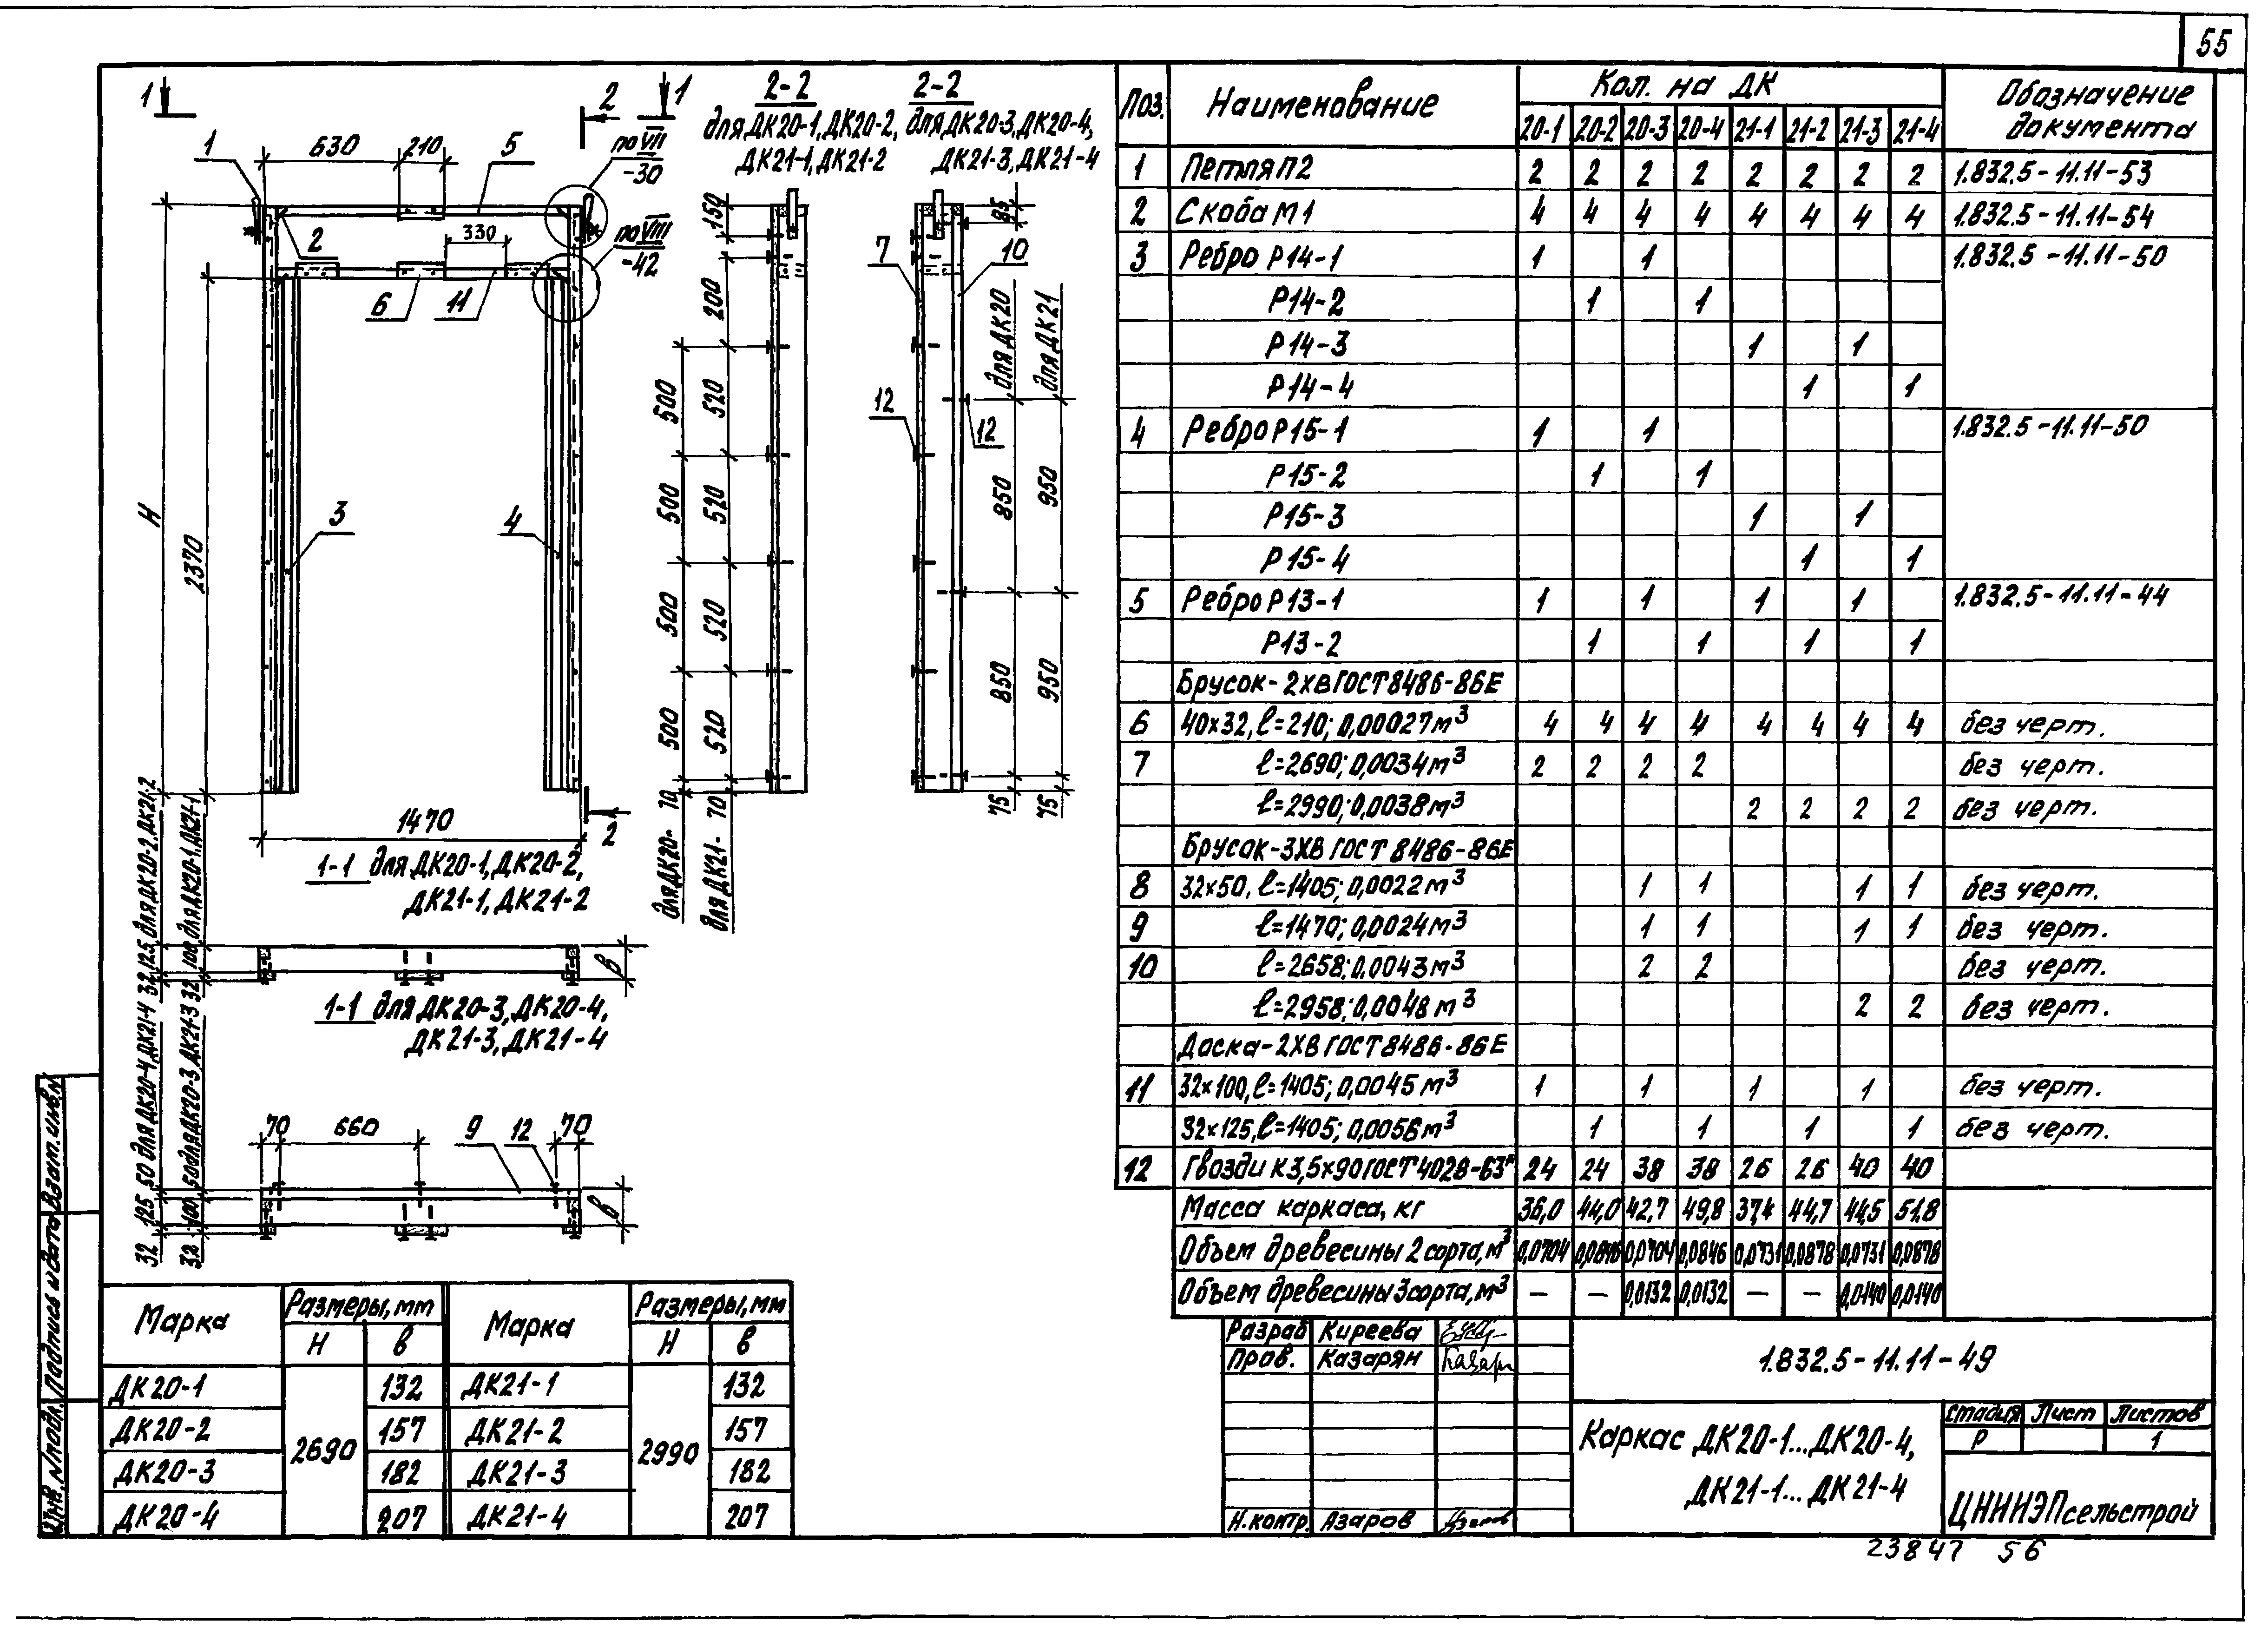 55
1
2
1
2-2
для ДК20-1, ДК20-2,
ДК21-1, ДК21-2
2-2
для ДК20-3, ДК20-4,
ДК21-3, ДК21-4
1
630
210
5
по VII
-30
2
330
по VIII
-42
6
11
3
4
H
2370
1470
2
150
200
500
500
500
500
520
520
520
520
70
70
для ДК20-
для ДК21-
7
10
85
12
12
для ДК20
для ДК21
850
950
850
950
75
75
1-1 для ДК20-1, ДК20-2,
ДК21-1, ДК21-2
32 125 для ДК20-2, ДК21-2
32 100 для ДК20-1, ДК21-1
в
1-1 для ДК20-3, ДК20-4,
ДК21-3, ДК21-4
32 125 50 для ДК20-4, ДК21-4
32 100 50 для ДК20-3, ДК21-3
70
660
9
12
70
в
Марка Размеры, мм Марка Размеры, мм
H в H в
ДК20-1 2690 132 ДК21-1 2990 132
ДК20-2 157 ДК21-2 157
ДК20-3 182 ДК21-3 182
ДК20-4 207 ДК21-4 207
Поз. Наименование Кол. на ДК Обозначение документа
20-1 20-2 20-3 20-4 21-1 21-2 21-3 21-4
1 Петля П2 2 2 2 2 2 2 2 2 1.832.5-11.11-53
2 Скоба М1 4 4 4 4 4 4 4 4 1.832.5-11.11-54
3 Ребро Р14-1 1 1 1.832.5-11.11-50
Р14-2 1 1
Р14-3 1 1
Р14-4 1 1
4 Ребро Р15-1 1 1 1.832.5-11.11-50
Р15-2 1 1
Р15-3 1 1
Р15-4 1 1
5 Ребро Р13-1 1 1 1 1 1.832.5-11.11-44
Р13-2 1 1 1 1
Брусок-2ХВ ГОСТ 8486-86Е
6 40х32, ℓ=210; 0,00027м³ 4 4 4 4 4 4 4 4 без черт.
7 ℓ=2690; 0,0034м³ 2 2 2 2 без черт.
ℓ=2990; 0,0038м³ 2 2 2 2 без черт.
Брусок-3ХВ ГОСТ 8486-86Е
8 32х50, ℓ=1405; 0,0022м³ 1 1 1 1 без черт.
9 ℓ=1470; 0,0024м³ 1 1 1 1 без черт.
10 ℓ=2658; 0,0043м³ 2 2 без черт.
ℓ=2958; 0,0048м³ 2 2 без черт.
Доска-2ХВ ГОСТ 8486-86Е
11 32х100, ℓ=1405; 0,0045м³ 1 1 1 1 без черт.
32х125, ℓ=1405; 0,0056м³ 1 1 1 1 без черт.
12 Гвозди К3,5х90 ГОСТ 4028-63* 24 24 38 38 26 26 40 40
Масса каркаса, кг 36,0 44,0 42,7 49,8 37,4 44,7 44,5 51.8
Объем древесины 2 сорта, м³ 0,0704 0,0846 0,0704 0,0846 0,0731 0,0878 0,0731 0,0878
Объем древесины 3 сорта, м³ — — 0,0132 0,0132 — — 0,0140 0,0140
Разраб Киреева
Пров. Казарян
Н.контр. Азаров
1.832.5-11.11-49
Каркас ДК20-1...ДК20-4,
ДК21-1...ДК21-4
Стадия Лист Листов
Р 1
ЦНИИЭПсельстрой
23847 56
Инв. N подл. Подпись и дата Взам. инв. N